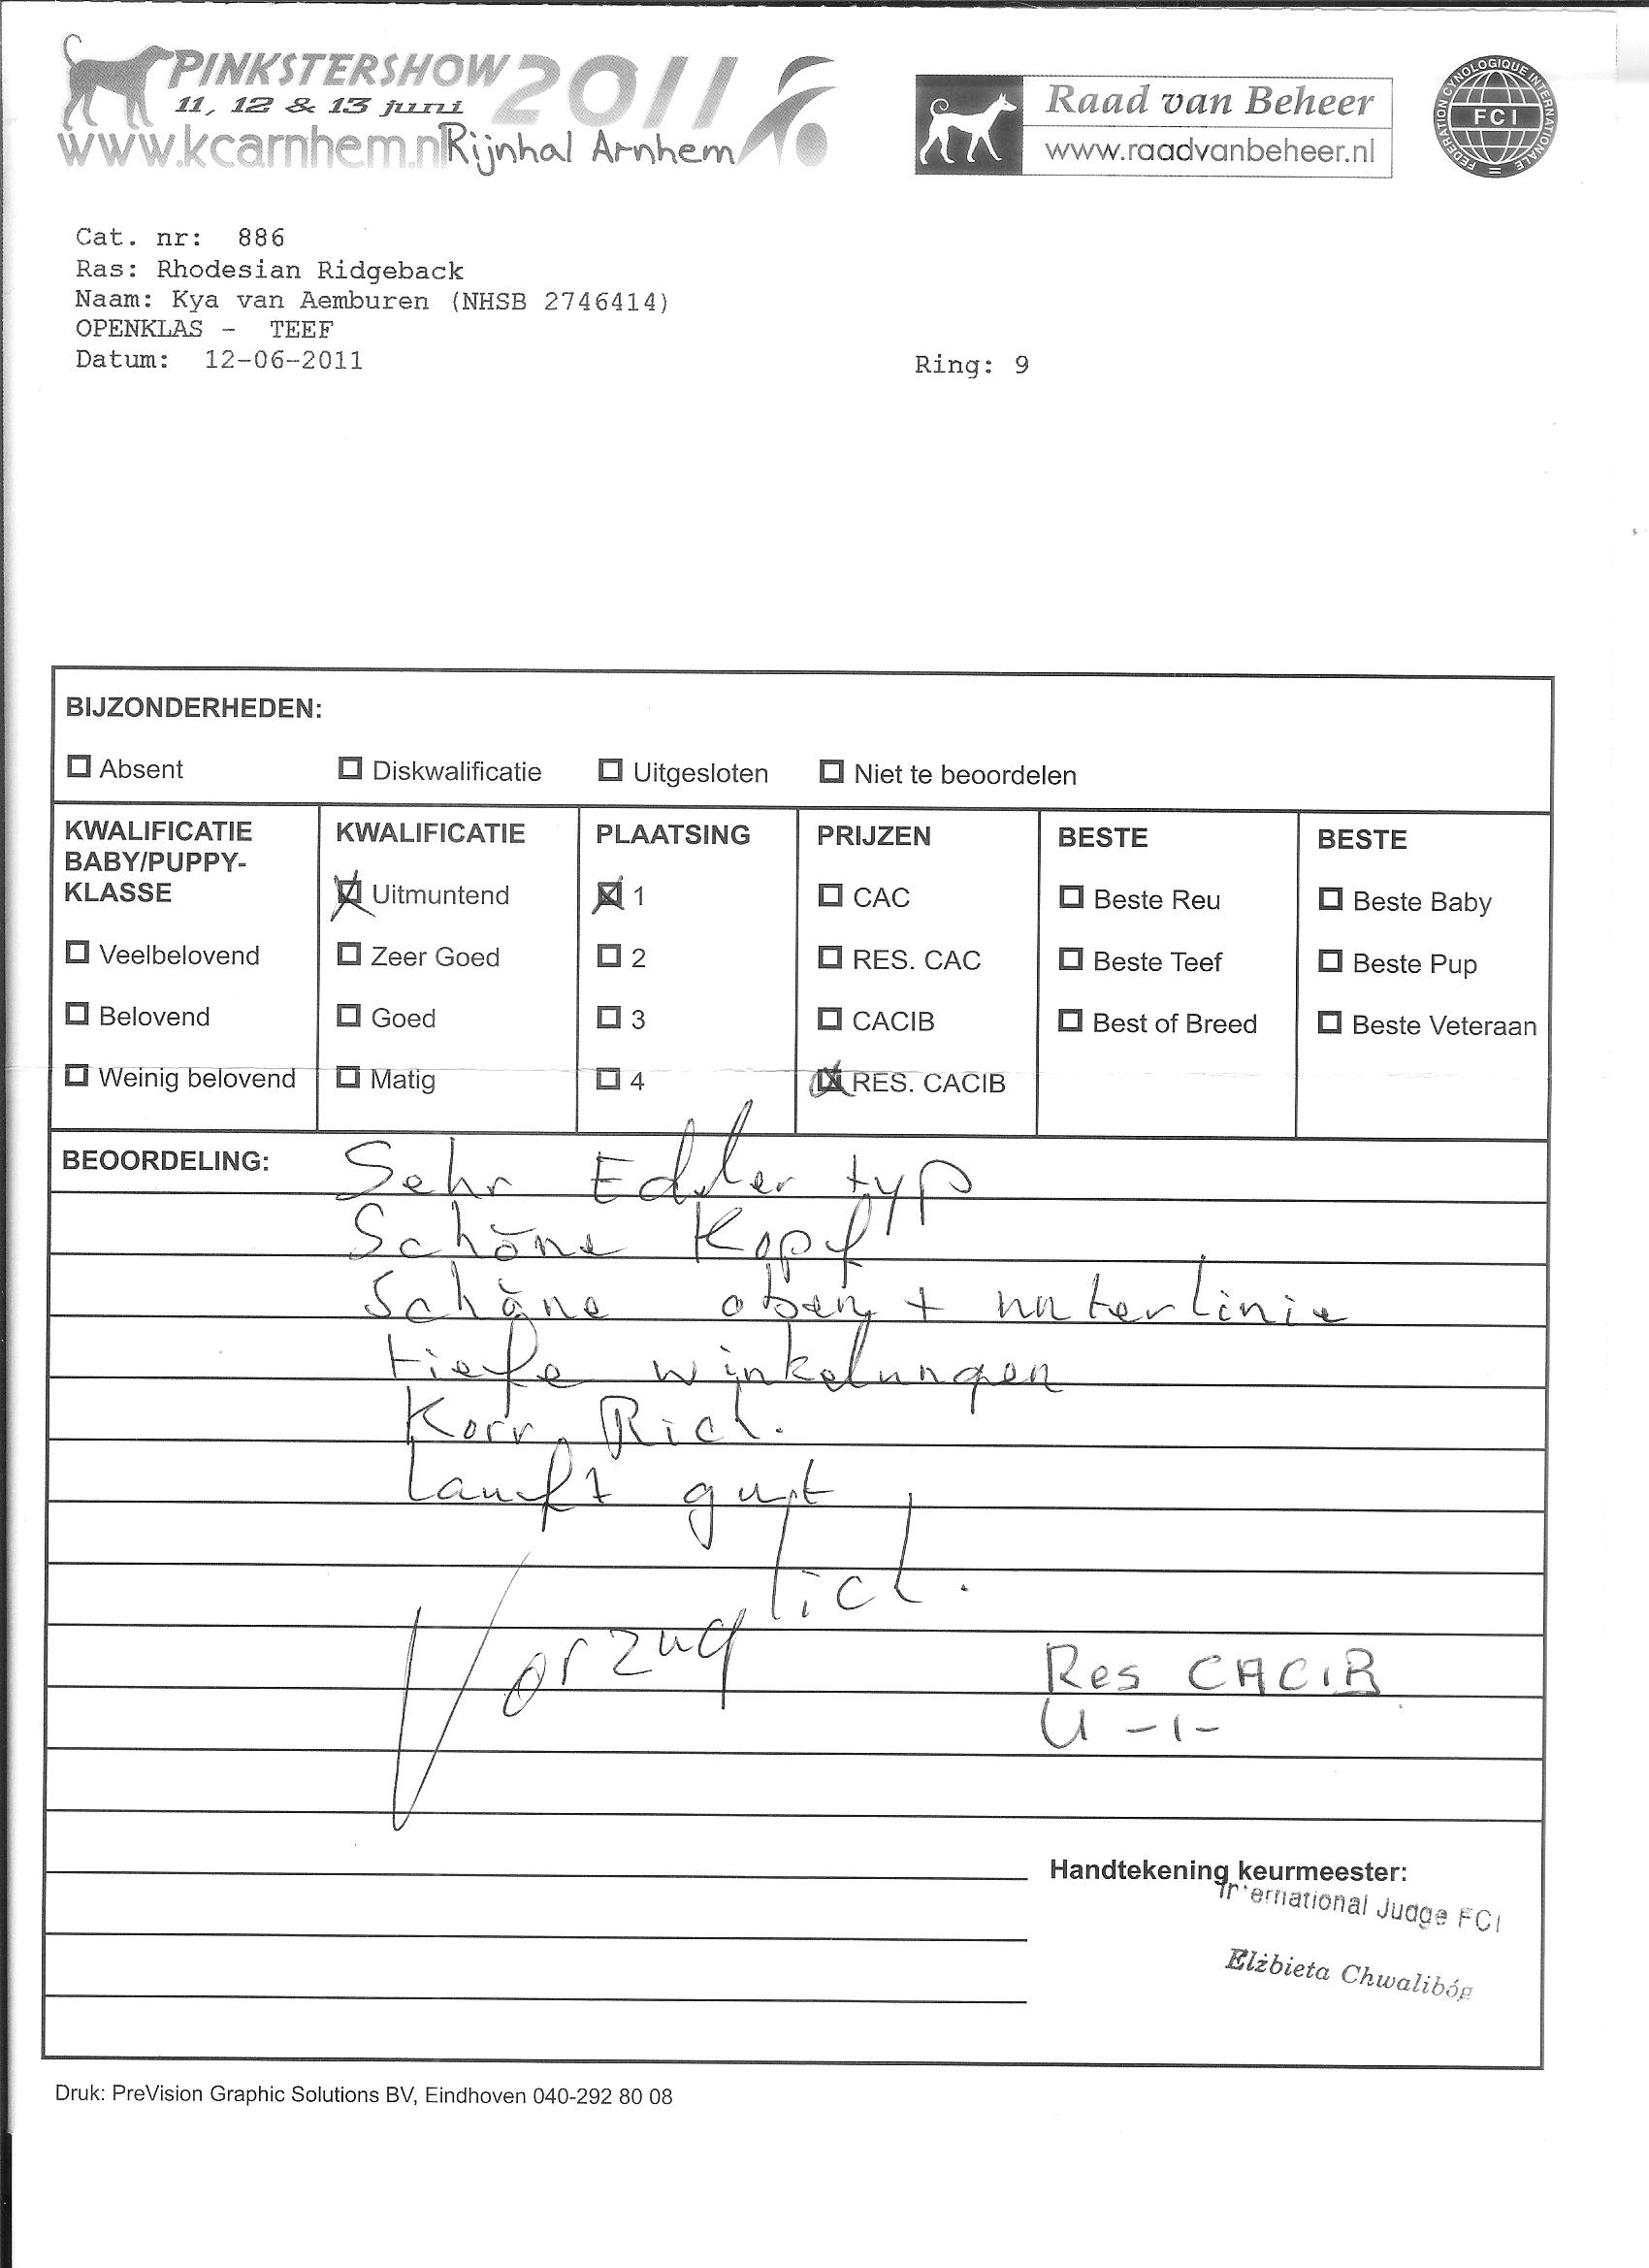 PINKSTERSHOW 2011
11, 12 & 13 juni
www.kcarnhem.nl Rijnhal Arnhem
Raad van Beheer
www.raadvanbeheer.nl
FEDERATION CYNOLOGIQUE INTERNATIONALE
FCI
Cat. nr: 886
Ras: Rhodesian Ridgeback
Naam: Kya van Aemburen (NHSB 2746414)
OPENKLAS - TEEF
Datum: 12-06-2011
Ring: 9
BIJZONDERHEDEN:
Absent Diskwalificatie Uitgesloten Niet te beoordelen
KWALIFICATIE BABY/PUPPY-KLASSE
Veelbelovend
Belovend
Weinig belovend
KWALIFICATIE
Uitmuntend
Zeer Goed
Goed
Matig
PLAATSING
1
2
3
4
PRIJZEN
CAC
RES. CAC
CACIB
RES. CACIB
BESTE
Beste Reu
Beste Teef
Best of Breed
BESTE
Beste Baby
Beste Pup
Beste Veteraan
BEOORDELING:
Sehr Edler typ
Schöne Kopf
Schöne oben + unterlinie
tiefe winkelungen
Korr. Rich.
Lauft gut
Vorzuglich.
Res CACIB
U -1-
Handtekening keurmeester:
International Judge FCI
Elżbieta Chwalibóg
Druk: PreVision Graphic Solutions BV, Eindhoven 040-292 80 08